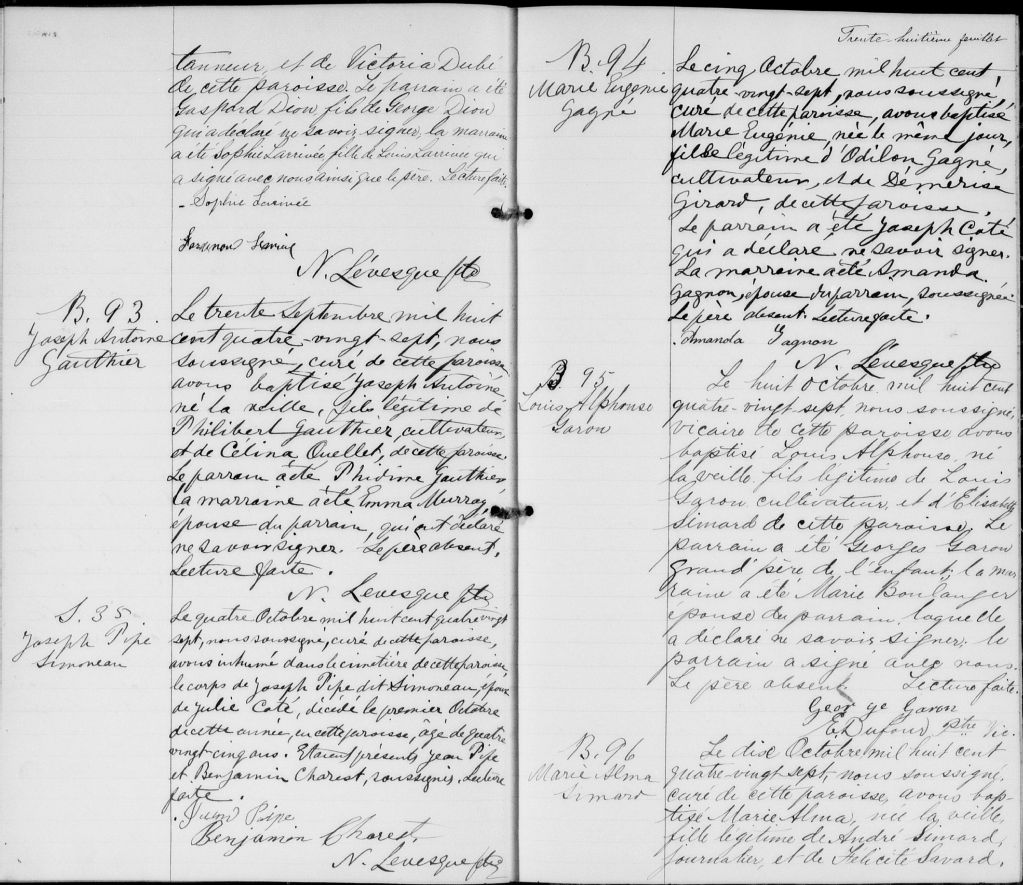 tanneur, et de Victoria Dubé
de cette paroisse. Le parrain a été
Gaspard Dion, fils de George Dion
qui a déclaré ne savoir signer, la marraine
a été Sophie Larrivée fille de Louis Larrivée qui
a signé avec nous ainsi que le père. Lecture faite.
- Sophie Larivée
N. Lévesque Ptre
B. 93.
Joseph Antoine
Gauthier
Le trente Septembre mil huit
cent quatre-vingt-sept, nous
soussigné, curé de cette paroisse
avons baptisé Joseph Antoine
né la veille, fils légitime de
Philibert Gauthier, cultivateur,
et de Célina Ouellet, de cette paroisse.
Le parrain a été Phidime Gauthier
la marraine a été Emma Murray,
épouse du parrain, qui ont déclaré
ne savoir signer. Le père absent.
Lecture faite.
N. Levesque Ptre
S. 35
Joseph Pipe
Simoneau
Le quatre Octobre mil huit cent quatre vingt
sept, nous soussigné, curé de cette paroisse,
avons inhumé dans le cimetière de cette paroisse,
le corps de Joseph Pipe dit Simoneau, époux
de Julie Coté, décédé le premier Octobre
de cette année, en cette paroisse, âgé de quatre
vingt-cinq ans. Etaient présents Jean Pipe
et Benjamin Charest, soussignés. Lecture
faite.
Pipe
Benjamin Charest
N. Levesque Ptre
Trente-huitième feuillet
B. 94.
Marie Eugénie
Gagné
Le cinq Octobre mil huit cent
quatre-vingt-sept, nous soussigné,
curé de cette paroisse, avons baptisé
Marie Eugénie, née le même jour,
fille légitime d'Odilon Gagné,
cultivateur, et de Démerise
Girard, de cette paroisse.
Le parrain a été Joseph Coté
qui a déclaré ne savoir signer.
La marraine a été Amanda
Gagnon, épouse du parrain, soussignée.
Le père absent. Lecture faite.
Amanda Gagnon
N. Lévesque Ptre
B. 95
Louis Alphonse
Garon
Le huit Octobre mil huit cent
quatre-vingt sept, nous soussigné,
vicaire de cette paroisse avons
baptisé Louis Alphonse, né
la veille fils légitime de Louis
Garon cultivateur, et d'Elisabeth
Simard de cette paroisse. Le
parrain a été Georges Garon
grand' père de l'enfant; la mar
raine a été Marie Boulanger
épouse du parrain, laquelle
a déclaré ne savoir signer, le
parrain a signé avec nous.
Le père absent. Lecture faite.
George Garon
E Dufour, ptre Vic.
B. 96
Marie Alma
Simard
Le dix Octobre mil huit cent
quatre-vingt sept, nous soussigné,
curé de cette paroisse, avons bap-
tisé Marie Alma, née la veille,
fille légitime de André Simard,
journalier, et de Félicité Savard,